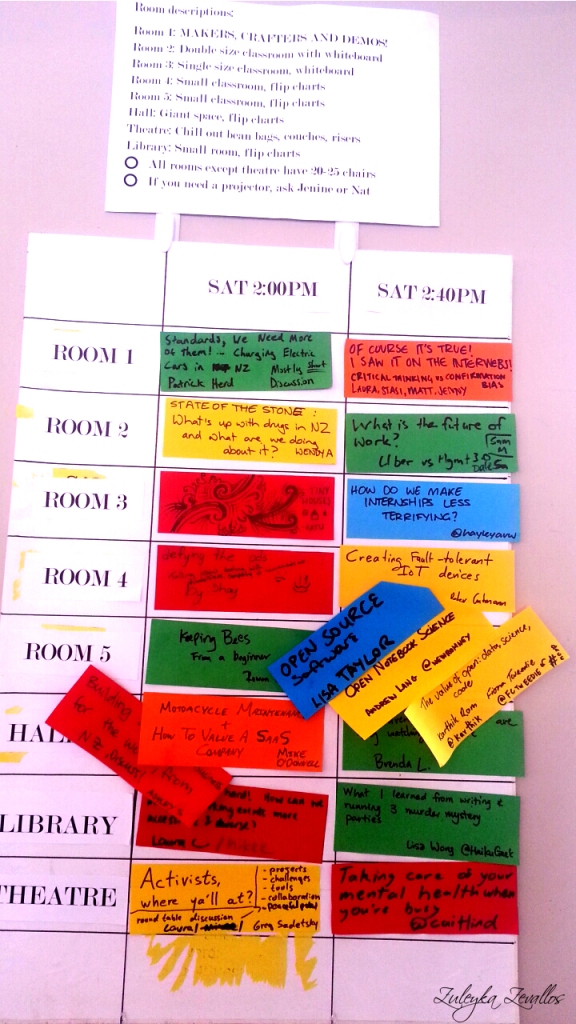 Room descriptions:
Room 1: MAKERS, CRAFTERS AND DEMOS!
Room 2: Double size classroom with whiteboard
Room 3: Single size classroom, whiteboard
Room 4: Small classroom, flip charts
Room 5: Small classroom, flip charts
Hall: Giant space, flip charts
Theatre: Chill out bean bags, couches, risers
Library: Small room, flip charts
All rooms except theatre have 20-25 chairs
If you need a projector, ask Jenine or Nat
SAT 2:00PM
SAT 2:40PM
ROOM 1
Standards, We Need More
of Them! - Charging Electric
Cars in NZ Mostly Short
Patrick Herd Discussion
OF COURSE IT'S TRUE!
I SAW IT ON THE INTERWEBS!
CRITICAL THINKING vs CONFIRMATION
BIAS
LAURA, STASI, MATT, JENNY
ROOM 2
STATE OF THE STONE:
What's up with drugs in NZ
and what are we doing
about it? WENDY A
What is the future of
Work?
Uber vs Mgmt 3.0
Sam
M
Dale
ROOM 3
TINY
HOUSES
HOW DO WE MAKE
INTERNSHIPS LESS
TERRIFYING?
@hayleyavw
ROOM 4
defying the
Creating Fault-tolerant
IoT devices
Peter Gutmann
ROOM 5
Keeping Bees
From a beginner
OPEN SOURCE
Software
LISA TAYLOR
OPEN NOTEBOOK SCIENCE
ANDREW LANG
The value of open: data, science,
code
Karthik Ram
@_Karthik
Fiona Tweedie
HALL
Building
for the
from
MOTORCYCLE MAINTENANCE
+
HOW TO VALUE A SAAS
COMPANY
MIKE
O'DONNELL
are
Brenda L.
LIBRARY
hard! How can we
more
What I learned from writing &
running 3 murder mystery
parties
Lisa Wong @HaikuGeek
THEATRE
Activists,
where ya'll at?
- projects
- challenges
- tools
- collaboration
round table discussion
Laura
Greg Sadetsky
Taking care of your
mental health when
you're busy
@caitlind
Zuleyka Zevallos